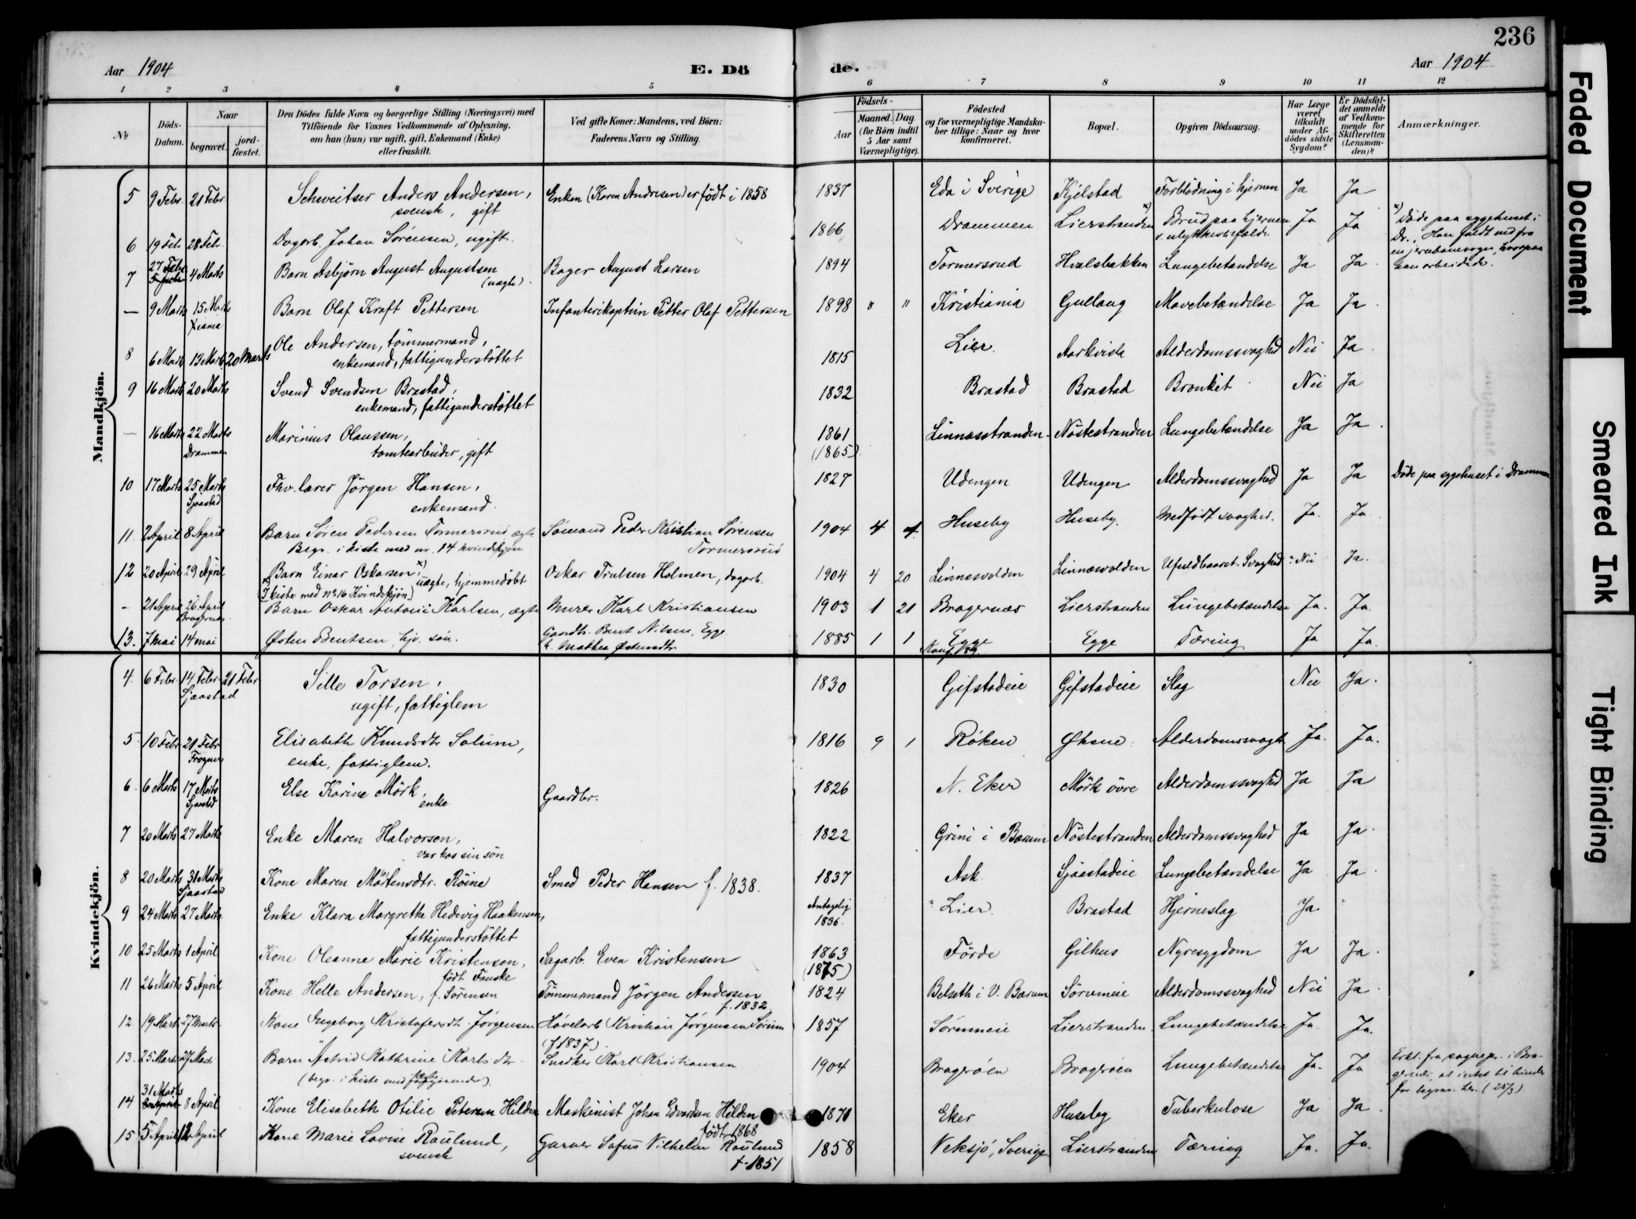 236
Aar 1904
E. Dö
de.
Aar 1904
1 2 3 4 5 6 7 8 9 10 11 12
No
Döds-Datum.
Naar
begravet.
jord-fæstet.
Den Dödes fulde Navn og borgerlige Stilling (Næringsvei) med
Tilföiende for Voxnes Vedkommende af Oplysning,
om han (hun) var ugift, gift, Enkemand (Enke)
eller fraskilt.
Ved gifte Koner: Mandens, ved Börn:
Faderens Navn og Stilling.
Födsels-
Aar
Maaned. Dag
(for Börn indtil
5 Aar samt
Værnepligtige).
Födested
og for værnepligtige Mandska-
ber tillige: Naar og hvor
konfirmeret.
Bopæl.
Opgiven Dödsaarsag.
Har Læge
været
tilkaldt
under Af-
dödes sidste
Sygdom?
Er Dödsfal-
det anmeldt
af Vedkom-
mende for
Skifteretten
(Lensman-
den)?
Anmærkninger.
Mandkjön.
5 9 Febr 21 Febr Schweitser Anders Andersen, Enken (Karen Andresen) er født i 1858 1837 Eda i Sverige Kjelstad Forblødning i hjernen Ja Ja
svensk, gift
6 19 Feb. 28 Feb. Dagarb. Johan Sørensen, ugift. 1866 Drammen Lierstranden x) Brud paa hjernen Ja Ja x) Døde paa sygehuset i
v. ulykkestilfælde Dr. Han faldt ned fra
hvorpaa
han arbeidede.
7 27 Febr 4 Marts Barn Asbjørn August Augustsen Bager August Larsen 1894 Tormersrud Hvalsbakken Lungebetændelse Ja Ja
(uægte)
— 9 Marts 15 Marts Barn Olaf Kraft Pettersen Infanterikaptein Petter Olaf Pettersen 1898 " " Kristiania Gullaug Mavebetændelse Ja Ja
Xiania
8 6 Marts 13 Marts 20 Marts Ole Andersen, tømmermand, 1815 Lier Aarkvisla Alderdomssvaghed Nei Ja
enkemand, fattigunderstøttet
9 16 Marts 20 Marts Svend Svendsen Brastad, 1832 Brastad Brastad Bronkit Nei Ja
enkemand, fattigunderstøttet
— 16 Marts 22 Marts Marinius Olaussen, 1861 Linnesstranden Nøstestranden Lungebetændelse Ja Ja
Drammen tomtearbeider, gift (1865)
10 17 Marts 25 Marts Fhv. lærer Jørgen Hansen, 1827 Udengen Udengen Alderdomssvaghed Ja Ja Døde paa sygehuset i Drammen
Sjaastad enkemand.
11 2 April 8 April Barn Søren Pedersen Tormersrud ægte Sømand Peder Kristian Sørensen 1904 4 1 Huseby Huseby Medfødt svaghed. Ja Ja
Begr. i kiste med nr. 14 kvindekjøn Tormersrud
12 20 April 29 April Barn Einar Oskarsen x) uægte, hjemmedøbt Oskar Trulsen Holmen, dagarb. 1904 4 20 Linnesvolden Linnesvolden Ufuldbaaret. Svaghed Nei Ja
x) I kiste med No 16 Kvindekjøn)
- 21 April 26 April Barn Oskar Antonii Karlsen, ægte Murer Karl Kristiansen 1903 1 21 Bragernæs Lierstranden Lungebetændelse Ja. Ja.
Bragernes
13. 7 mai 14 mai Østen Bentsen, hjv. søn. Gaardb. Bent Nilsen, Egge 1885 1 1 Egge Egge Tæring Ja Ja.
Kvindekjön.
4. 6 Febr 14 Febr 21 Febr Sille Torsen, 1830 Gifstadeie Gifstadeie Slag Nei Ja.
Sjaastad ugift, fattiglem
5. 10 Febr 21 Febr Elisabeth Knudsdtr Solum, 1816 9 1 Røken Øksne Alderdomssvagh. Ja. Ja.
Frogner enke, fattiglem.
6. 6 Marts 17 Marts Else Karine Mørk, Gaardbr. 1826 N. Eker Mörk övre Alderdomssvaghed Ja Ja
Sjaastad enke
7 20 Marts 27 Marts Enke Maren Halvorsen, 1822 Grini i Bærum Nøstestranden Alderdomssvaghed Ja Ja.
var hos sin søn
8 20 Marts 31 Marts Kone Maren Mårtensdtr. Røine Smed Peder Hansen f. 1838. 1837 Ask Sjåstadeie Lungebetændelse Ja Ja.
Sjaastad
9 24 Marts 27 Marts Enke Klara Margrethe Hedevig Haakensen, Antagelig 1836. Lier. Brastad Hjerneslag Ja "
fattigunderstøttet
10 25 Marts 1 April Kone Oleanne Marie Kristensen, Sagarb. Even Kristensen 1863 Førde Gilhus Nyresygdom Ja Ja.
født Fauske (1875)
11 26 Marts 5 April Kone Helle Andersen, f. Sørensen Tømmermand Jørgen Andersen 1824 Belseth i V. Bærum Sørumeie Alderdomssvaghed Nei Ja.
f. 1832
12 19 Marts 27 Marts Kone Ingeborg Kristofersdtr Jørgensen Høvelarb. Kristian Jørgensen Sørum 1857 Sørumeie Lierstranden Lungebetændelse Ja. Ja.
(f 1837)
13. 25 Marts 27 Marts Barn Astrid Kathrine Karlsdtr. Snedker Karl Kristiansen 1904 Bragerøen Bragerøen Lungebetændelse Ja. Ja Erkl. fra sognepr. i Bra-
gernes, at intet er til hinder
for begrav. her (25/3)
14 31 Marts 8 April Kone Elisabeth Otilie Petersen Hilden Maskinist Johan Edvardsen Hilden 1870 Eker Huseby Tuberkulose Ja Ja.
født 1868
15 5 April 12 April Kone Marie Lovise Raulund, Garver Sofus Vilhelm Raulund 1858 Veksjö, Sverige Lierstranden Tæring Ja. Ja.
svensk f. 1851
Faded Document
Smeared Ink
Tight Binding